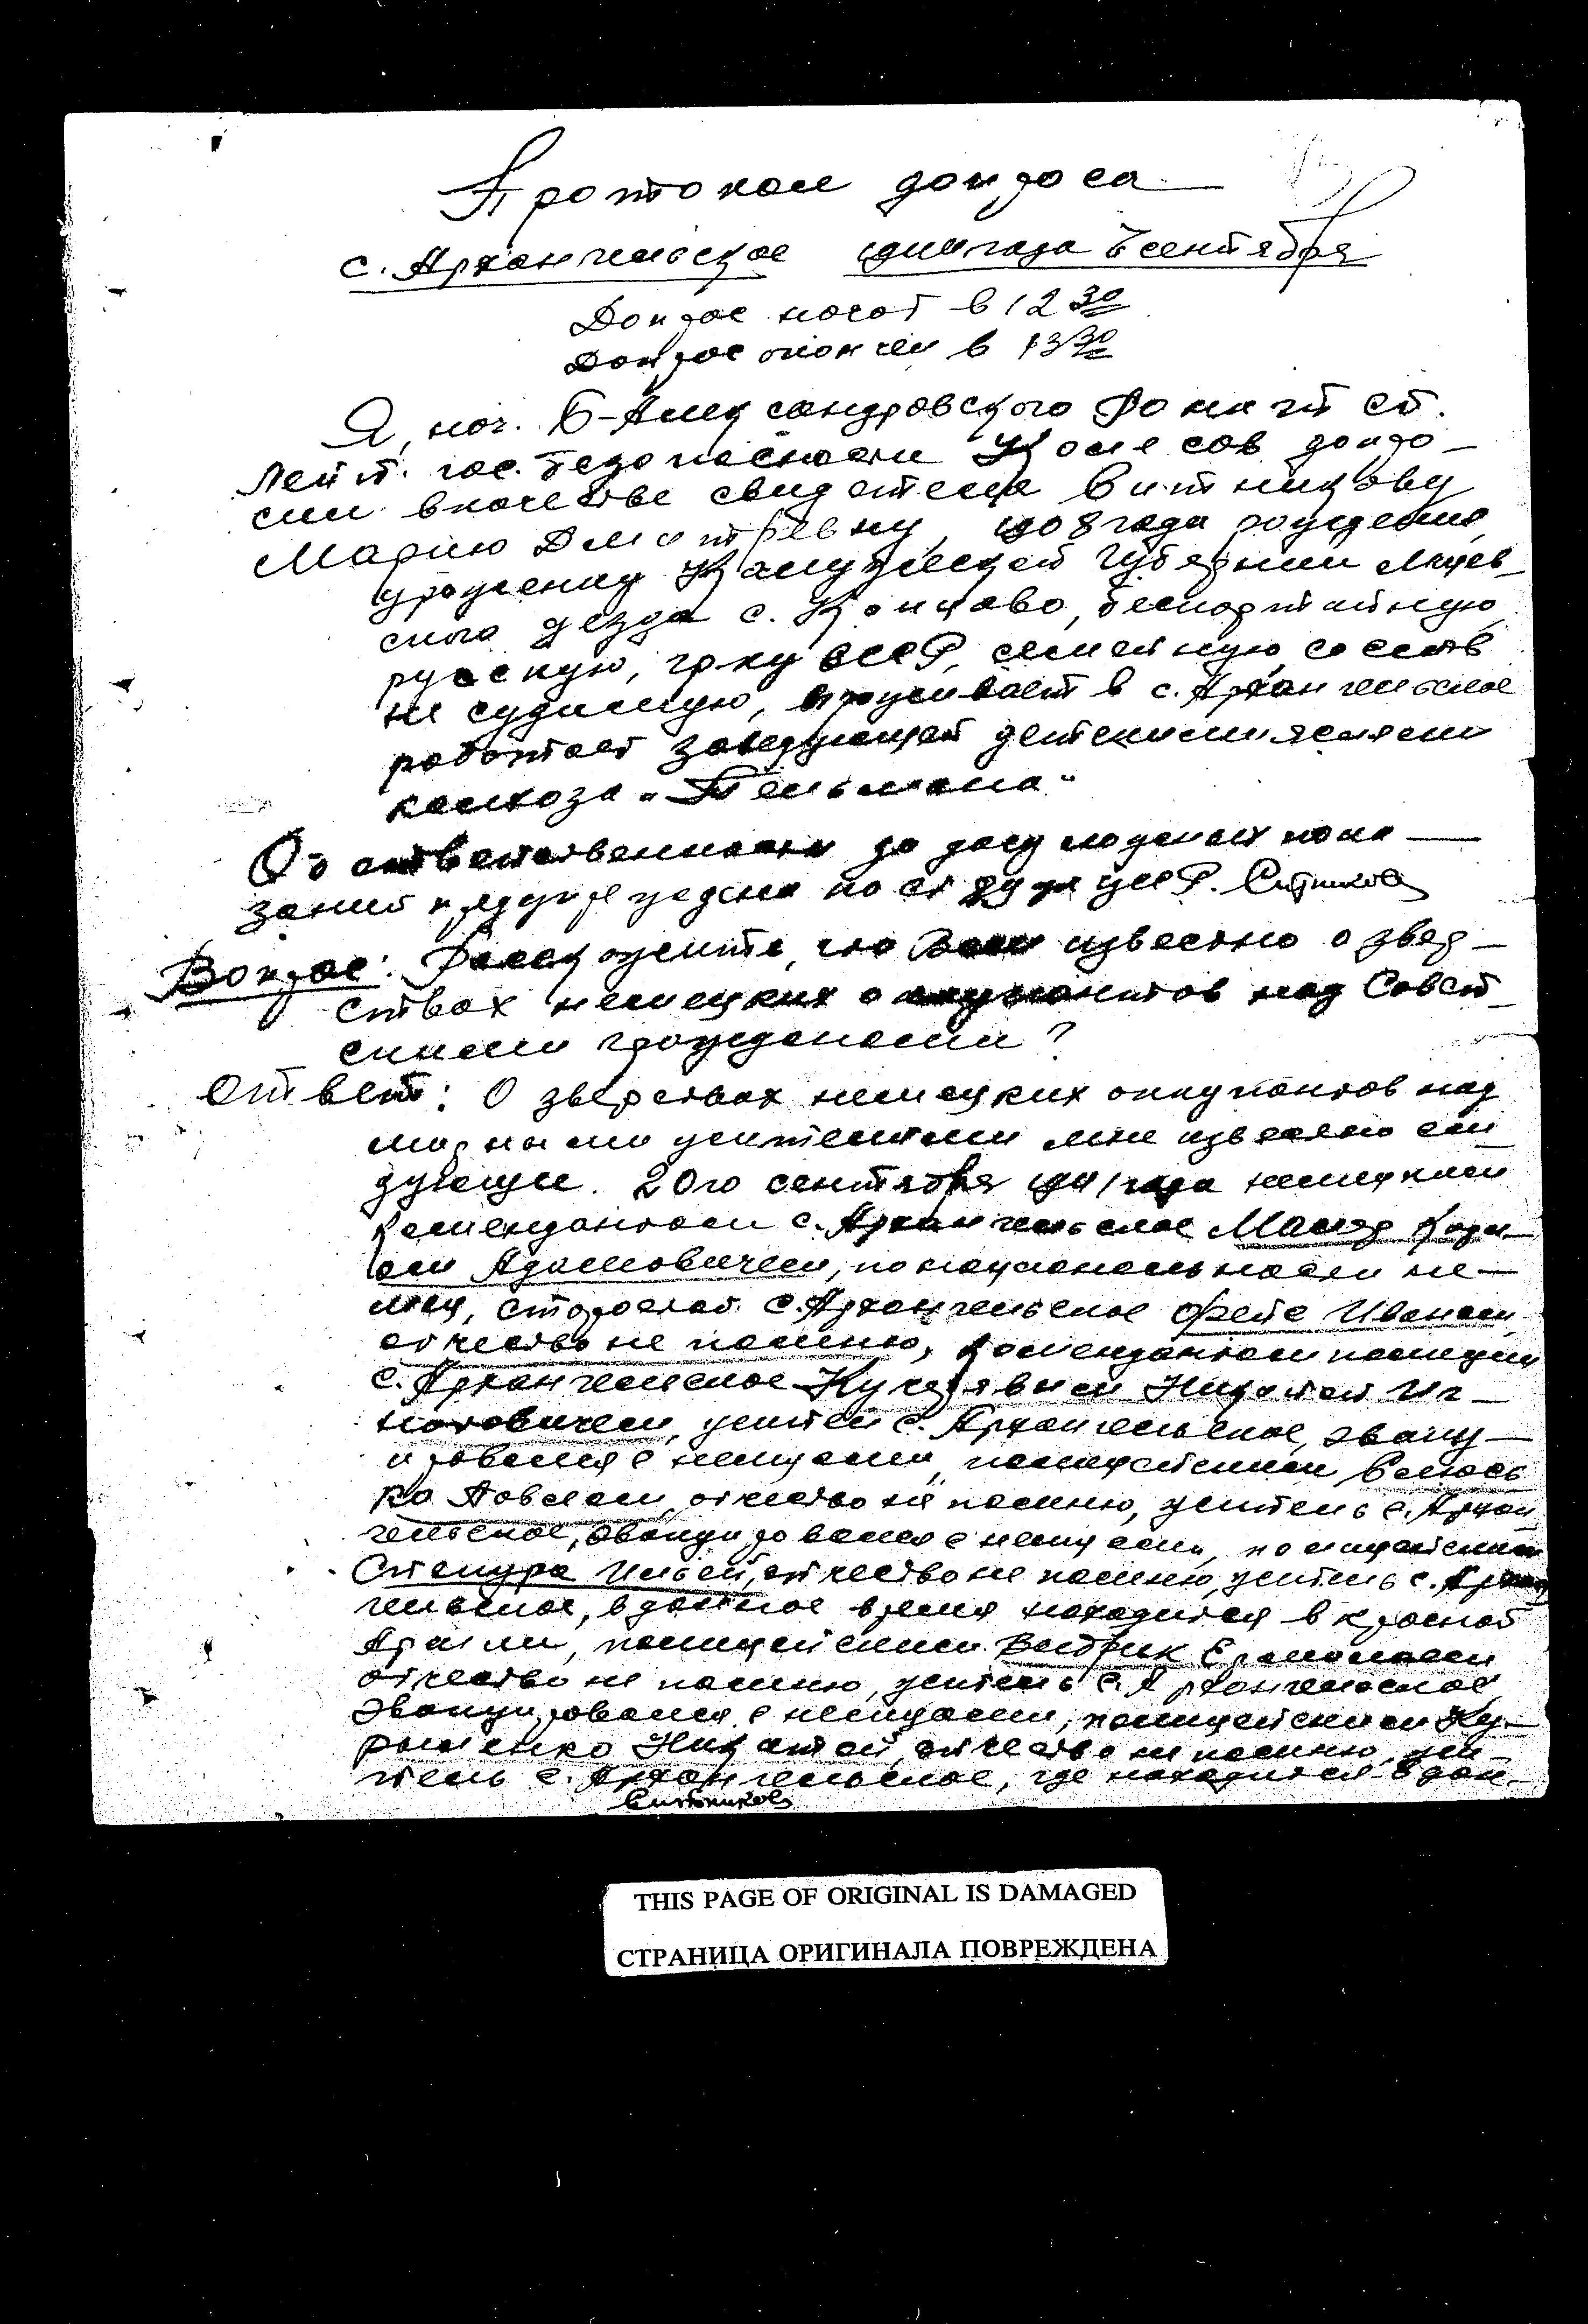 Протокол допроса
с. Архангельское 1944 года 7 сентября
Допрос начат в 12 30
Допрос окончен в 13 30
Я, нач. Б-Александровского РО НКГБ ст.
лейт. гос. безопасности Колесов допро-
сил в качестве свидетеля Ситникову
Марию Дмитревну, 1908 года рождения,
уроженку Калужской губернии
ского уезда с. беспартийную,
русскую, гр-ку СССР, семейную, со слов
не судимую, проживает в с. Архангельское
работает заведующей детскими яслями
колхоза "Тельмана"
Об ответственности за дачу ложных пока-
заний предупреждена по ст УК УССР. Ситникова
Вопрос: Расскажите, что Вам известно о звер-
ствах немецких оккупантов над Совет-
скими гражданами?
Ответ: О зверствах немецких оккупантов над
мирными жителями мне известно сле-
дующее. 20го сентября 1941 года немецким
комендантом с. Архангельское
Адамовичем, по национальности не-
мец, старостой с. Архангельское Иваном,
отчество не помню, комендантом полиции
с. Архангельское Кучерявым Никитой Иг-
натовичем, житель с. Архангельское, эваку-
ировался с немцами, полицейским
Павлом, отчество не помню, житель с. Архан-
гельское, эвакуировался с немцами, полицейским
Ильей, отчество не помню, житель с. Архан-
гельское, в данное время находится в Красной
Армии, полицейским Ермолаем
отчество не помню, житель с. Архангельское,
эвакуировался с немцами, полицейским Ку-
Никитой, отчество не помню, жи-
тель с. Архангельское, где находится в дан-
Ситникова
THIS PAGE OF ORIGINAL IS DAMAGED
СТРАНИЦА ОРИГИНАЛА ПОВРЕЖДЕНА